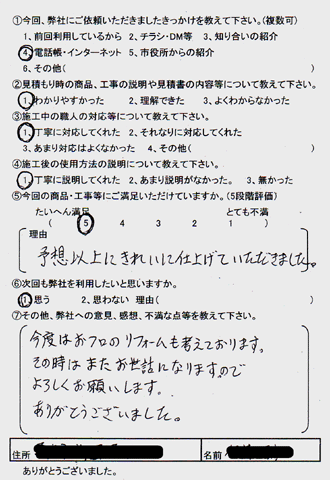 ①今回、弊社にご依頼いただきましたきっかけを教えて下さい。(複数可)
1、前回利用しているから 2、チラシ・DM等 3、知り合いの紹介
4、電話帳・インターネット 5、市役所からの紹介
6、その他(
②見積もり時の商品、工事の説明や見積書の内容等について教えて下さい。
1、わかりやすかった 2、理解できた 3、よくわからなかった
③施工中の職人の対応等について教えて下さい。
1、丁寧に対応してくれた 2、それなりに対応してくれた
3、あまり対応はよくなかった 4、その他( )
④施工後の使用方法の説明について教えて下さい。
1、丁寧に説明してくれた 2、あまり説明がなかった。 3、無かった
⑤今回の商品・工事等にご満足いただけていますか。(5段階評価)
たいへん満足 とても不満
( 5 4 3 2 1 )
理由
予想以上にきれいに仕上げていただきました。
⑥次回も弊社を利用したいと思いますか。
1、思う 2、思わない 理由( )
⑦その他、弊社への意見、感想、不満な点等を教えて下さい。
今度はおフロのリフォームも考えております。
その時はまたお世話になりますので
よろしくお願いします。
ありがとうございました。
住所 名前
ありがとうございました。